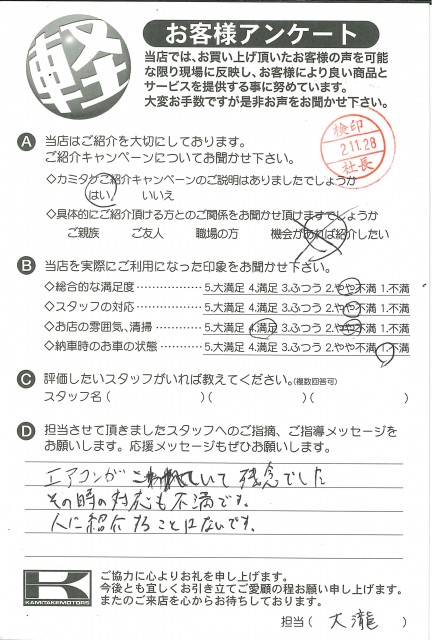 軽
お客様アンケート
当店では、お買い上げ頂いたお客様の声を可能
な限り現場に反映し、お客様により良い商品と
サービスを提供する事に努めています。
大変お手数ですが是非お声をお聞かせ下さい。
検印
2.11.28
社長
A 当店はご紹介を大切にしております。
ご紹介キャンペーンについてお聞かせ下さい。
◇カミタケご紹介キャンペーンのご説明はありましたでしょうか
はい いいえ
◇具体的にご紹介頂ける方とのご関係をお聞かせ頂けますでしょうか
ご親族 ご友人 職場の方 機会があれば紹介したい
B 当店を実際にご利用になった印象をお聞かせ下さい。
◇総合的な満足度 ……………… 5.大満足 4.満足 3.ふつう 2.やや不満 1.不満
◇スタッフの対応 ……………… 5.大満足 4.満足 3.ふつう 2.やや不満 1.不満
◇お店の雰囲気、清掃 ………… 5.大満足 4.満足 3.ふつう 2.やや不満 1.不満
◇納車時のお車の状態 ………… 5.大満足 4.満足 3.ふつう 2.やや不満 1.不満
C 評価したいスタッフがいれば教えてください。(複数回答可)
スタッフ名 ( )( )( )
D 担当させて頂きましたスタッフへのご指摘、ご指導メッセージを
お願いします。応援メッセージもぜひお願いします。
エアコンが こわれていて 残念でした
その時の対応も不満です。
人に紹介することはないです。
K
KAMITAKEMOTORS
ご協力に心よりお礼を申し上げます。
今後とも宜しくお引き立てご愛顧の程お願い申し上げます。
またのご来店を心からお待ちしております。
担当 ( 大瀧 )